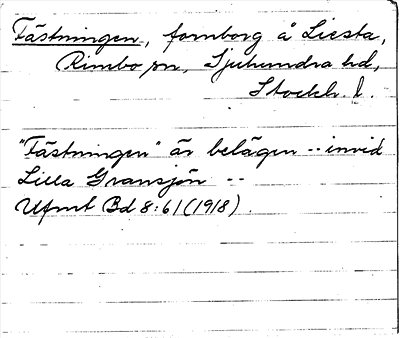 Fästningen, fornborg å Liesta,
Rimbo sn, Sjuhundra hd,
Stockh. l.
"Fästningen" är belägen -- invid
Lilla Gransjön --
Ufmt Bd 8:61 (1918).